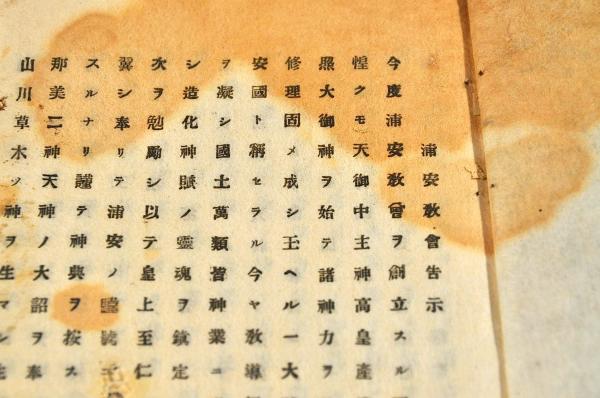 浦安敎會告示
今度浦安敎會ヲ創立スル
惶クモ天御中主神高皇產
照大御神ヲ始テ諸神力ヲ
修理固メ成シ玉ヘル一大
安國ト稱セラル今ヤ敎導
ヲ凝シ國土萬類皆神業ニ
シ造化神賦ノ靈魂ヲ鎭定
次ヲ勉勵シ以テ皇上至仁
翼シ奉リテ浦安ノ
スルナリ謹テ神典ヲ按ス
那美二神天神ノ大詔ヲ奉
山川草木ノ神ヲ生マシ